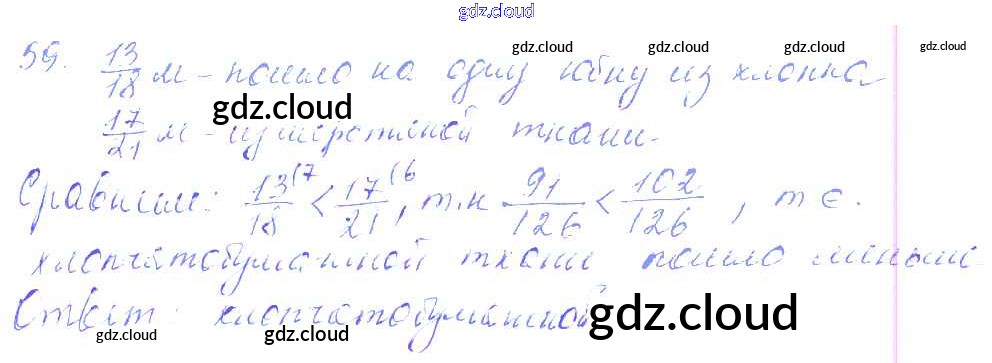 gdz.cloud
59. 13/18 м - пошло на одну юбку из хлопка
gdz.cloud gdz.cloud
gdz.cloud gdz.cloud
17/21 м - из шерстяной ткани.
gdz.cloud
Сравним: 13(7/18 < 17(6/21, т.к 91/126 < 102/126, т е.
хлопчатобумажной ткани пошло меньше
Ответ: хлопчатобумажной
gdz.cloud gdz.cloud gdz.cloud gdz.cloud